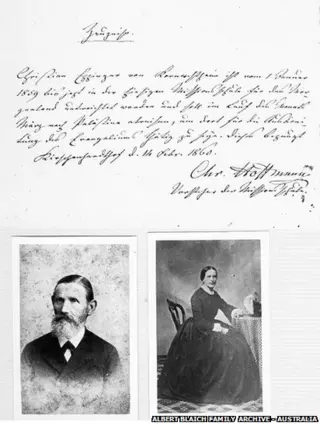 Zeugniß.
Christian Eppinger von Kornwestheim ist vom 1 Januar
1859 bis jetzt in der hiesigen Missionsschule für das Mor-
genland unterrichtet worden und soll im Lauf des Monats
März nach Palästina abreisen, um dort für die Ausbrei-
tung des Evangeliums thätig zu sein. Dieses bezeugt
Kirschenhardthof d. 14 Febr. 1860.
Chr. Hoffmann
Vorsteher der Missionsschule.
ALBERT BLAICH FAMILY ARCHIVE - AUSTRALIA